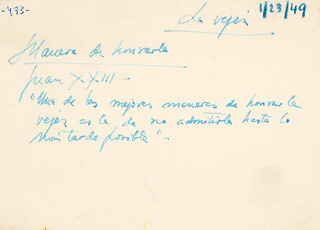 -433-
La vejez
1/23/49
Manera de honrarla
Juan XXIII-
"Una de las mejores maneras de honrar la
vejez es la de no admitirla hasta lo
más tarde posible"-